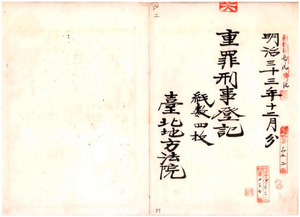 明治三十三年十二月分
重罪刑事登記
紙数四枚
臺北地方法院